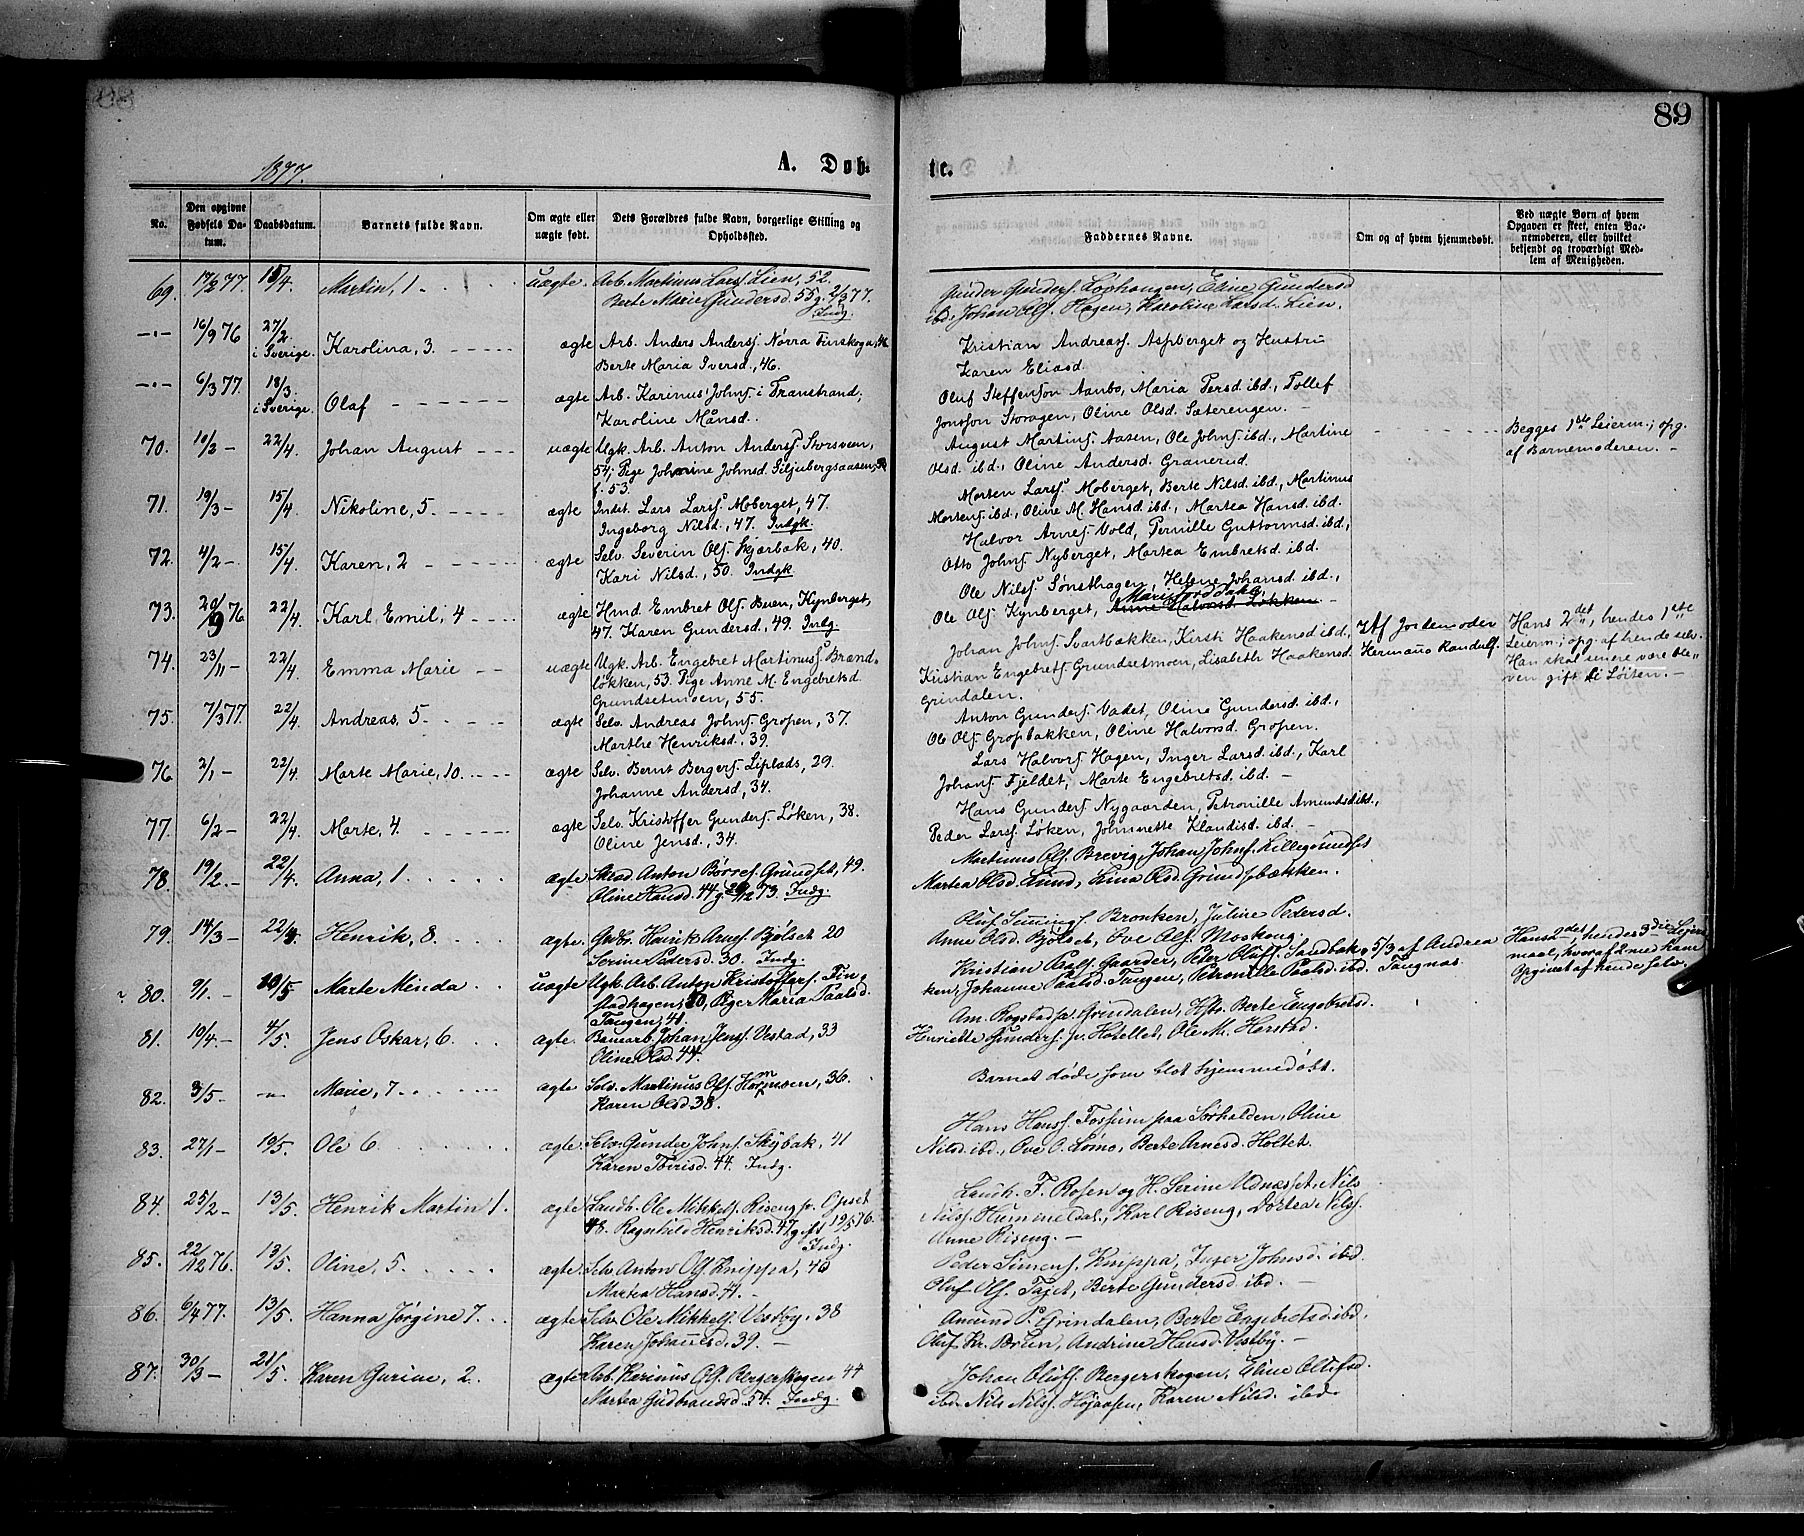 89
1877.
A. Døb-
te.
No.
Den opgivne Fødsels Datum.
Daabsdatum.
Barnets fulde Navn.
Om ægte eller uægte født.
Dets Forældres fulde Navn, borgerlige Stilling og Opholdssted.
Faddernes Navne.
Om og af hvem hjemmedøbt.
Ved uægte Børn af hvem Opgaven er skeet, enten Barnemoderen, eller hvilket bekjendt og troværdigt Medlem af Menigheden.
69. 17/2 77. 15/4. Martin, 1 uægte. Arb. Martinus Larss. Lien, 52.
Berte Marie Gundersd. 55 g. 2/3 77.
Indg.
Gunder Gunders. Løphaugen, Eline Gundersd
ibd., Johan Ols. Hagen, Karoline Hansd. Lien.
-"- 16/9 76 27/2. i Sverige. Karolina, 3. ægte Arb. Anders Anderss. Nørra Finskoga, 46
Berte Maria Iversd., 46.
Kristian Andreass. Aspberget og Hustru
Karen Eliasd.
-"- 6/3 77. 18/3. i Sverige. Olaf ægte Arb. Karinus Johns. i Transtrand,
Karoline Månsd.
Oluf Steffenson Aanbo, Maria Persd. ibd., Tollef
Jonsson Storagen, Oline Olsd. Sæterengen.
70. 10/2 - 22/4. Johan August uægte Ugk. Arb. Anton Anderss. Storsveen,
54; Pige Johanine Johnsd. Siljubergsaasen,
f. 53.
August Martins. Aasen, Ole Johns. ibd., Martine
Olsd. ibd., Oline Andersd. Granerud.
Begges 1ste Leierm.; opg.
af Barnemoderen. -
71. 19/3 - 15/4. Nikoline, 5. ægte Indst. Lars Larss. Moberget, 47.
Ingeborg Nilsd., 47. Indgk.
Morten Larss. Moberget, Berte Nilsd. ibd., Martinus
Mortens. ibd., Oline M. Hansd. ibd., Martea Hansd. ibd.
72. 4/2 - 15/4. Karen, 2 ægte Selv. Severin Ols. Skjærbak, 40.
Kari Nilsd., 50. Indgk.
Halvor Arnes. Vold, Pernille Guttormsd. ibd.,
Otto Johns. Nyberget, Martea Embretsd. ibd.
73. 20/9 76 22/4. Karl Emil, 4 ægte Hmd. Embret Ols. Buen, Kynberget,
47. Karen Gundersd., 49. Indg.
Ole Nilss. Sønsthagen, Helene Johansd. ibd.,
Ole Ols. Kynberget, Anne Halvorsd. Løkken
74. 23/11 - 22/4. Emma Marie uægte Ugk. Arb. Engebret Martinuss. Brænd-
løkken, 53. Pige Anne M. Engebretsd.
Grundsetmoen, 55.
Johan Johns. Svartbakken, Kirsti Haakensd. ibd.,
Kristian Engebrets. Grundsetmoen, Lisabeth Haakensd
Grindalen.
Af Jordemoder
Hermana Randulf.
Hans 2det, hendes 1ste
Leierm.; opg. af hende selv.
Han skal senere være ble-
ven gift i Løiten. -
75. 7/3 77. 22/4. Andreas, 5. ægte Selv. Andreas Johns. Gropen, 37.
Marthe Henriksd., 39.
Anton Gunders. Vadet, Oline Gundersd. ibd.,
Ole Ols. Gropbakken, Oline Halvorsd. Gropen.
76 2/1 - 22/4. Marte Marie, 10. ægte Selv. Bernt Bergers. Liplads, 29.
Johanne Andersd., 34.
Lars Halvors. Hagen, Inger Larsd. ibd., Karl
Johans. Fjeldet, Marte Engebretsd. ibd. -
77. 6/2 - 22/4. Marte, 4. ægte Selv. Kristoffer Gunders. Løken, 38.
Oline Jensd., 34.
Hans Gunders. Nygaarden, Petronille Amundsd. ibd.,
Peder Larss. Løken, Johnnette Klaudisd. ibd. -
78. 19/2. - 22/4. Anna, 1. ægte Anton Børres. Grundset, 49.
Oline Hansd. 44 g. 29/12 73. Indg.
Martinus Ols. Brevig, Johan Johns. Lillegrundset
Martea Olsd. Lund, Lina Olsd. Grundsetbækken.
79. 14/3 - 22/4. Henrik, 8. ægte. Gdbr. Henrik Arnes. Bjølset 20
Serine Pedersd. 30. Indg.
Oluf Bronken, Juline Pedersd.
Anne Olsd. Bjølset, Ove Ols. Moskoug.
80. 9/1. - 20/5 Marte Minda uægte Ugk. Arb. Anton Kristoffers. Fing-
stadhagen, 50, Pige Maria Paalsd.
Tangen, 41.
Kristian Paals. Gaarder, Peter Olufs. Sandbak-
ken, Johanne Paalsd. Tangen, Petronille Paalsd. ibd.
5/3 af Andrea
Tangnæs.
Hans 2det, hendes 3die Leier-
maal, hvoraf 2 med ham
Opgivet af hende selv.
81. 10/4 - 4/5. Jens Oskar, 6. ægte. Banearb. Johan Jenss. Vestad, 33
Oline Olsd. 44.
Am. Rogstad pr. Grindalen, Hstr. Berte Engebretsd.
Henriette Gunders. pr. Hotellet, Ole M. Herstad.
82. 3/5 - -"- Marie, 7. ægte Selv. Martinus Ols. Hornmoen, 36.
Karen Olsd. 38.
Barnet døde som blot hjemmedøbt.
83. 27/1 - 10/5. Ole 6. ægte. Selv. Gunder Johns. Skybak, 41
Karen Iverisd. 44. Indg.
Hans Hanss. Fossum paa Sørholden, Oline
Nilsd. ibd., Ove O. Lømo, Berte Arnesd. Holtet.
84. 25/2 - 13/5. Henrik Martin 1. ægte Landh. Ole Mikkels. Riseng pr. Opset
48. Ragnhild Henriksd. 47, gift 19/5 76.
Indg.
Landh. F. Rosen og H. Serine Udnæsset, Nils
Nilss. Hummeldal, Karl Riseng, Dortea Nilss.
Anne Riseng. -
85. 22/12 76. 13/5. Oline, 5. ægte. Selv. Anton Ols. Knippa, 46
Martea Hansd. 41. -
Peder Simens. Knippa, Inger Johnsd. ibd
Oluf Ols. Tajet, Berte Gundersd. ibd. -
86. 6/4 77. 13/5. Hanna Jørgine 7. ægte Selv. Ole Mikkels. Vestby, 38
Karen Johannesd. 39. -
Amund P. Grindalen, Berte Engebretsd. ibd.
Oluf Kr. Bølien, Andrine Hansd. Vestby. -
87. 30/3 - 21/5. Karen Gurine, 2. ægte Arb. Karinus Ols. Bergerskogen 44
Martea Gudbrandsd. 54. Indg.
Johan Olufs. Bergerskogen, Eline Olufsd.
ibd. Nils Nilss. Højaasen, Karen Nilsd. ibd.